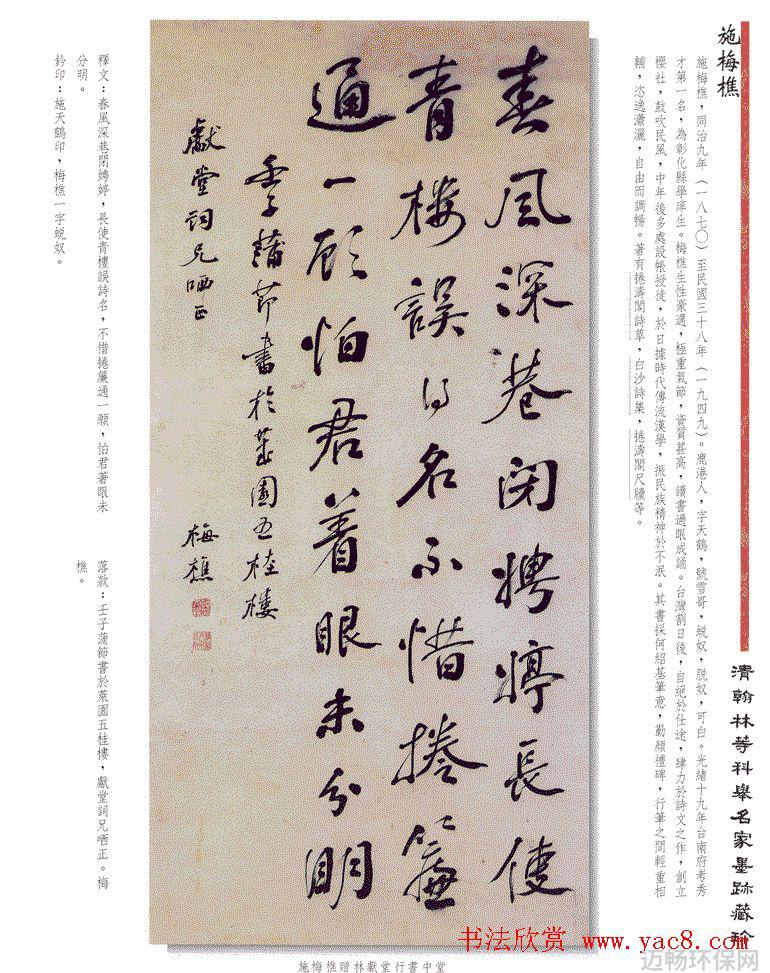 施梅樵
清翰林等科舉名家墨跡藏珍
施梅樵，同治九年（一八七〇）至民國三十八年（一九四九）。鹿港人，字天鶴，號雪哥，蛻奴，脫奴，可白。光緒十九年台南府考秀
才第一名，為彰化縣學庠生。梅樵生性豪邁，極重氣節，資質甚高，讀書過眼成誦。台灣割日後，自絕於仕途，肆力於詩文之作，創立
櫻社，鼓吹民風，中年後多處設帳授徒，於日據時代傳流漢學，振民族精神於不泯。其書採何紹基筆意，勤顏禮碑，行筆之間輕重相
輔，恣逸瀟灑，自由而調暢。著有捲濤閣詩草，白沙詩集，捲濤閣尺牘等。
春風深巷閉娉婷長使
青樓誤得名不惜捲簾
通一顧怕君着眼未分明
壬子蒲節書於萊園五桂樓
獻堂詞兄哂正 梅樵
釋文：春風深巷閉娉婷，長使青樓誤詩名，不惜捲簾通一願，怕君著眼未
分明。
鈐印：施天鶴印，梅樵一字蛻奴。
落款：壬子蒲節書於萊園五桂樓，獻堂詞兄哂正。梅
樵。
施梅樵贈林獻堂行書中堂
书法欣赏 www.yac8.com
迈畅环保网